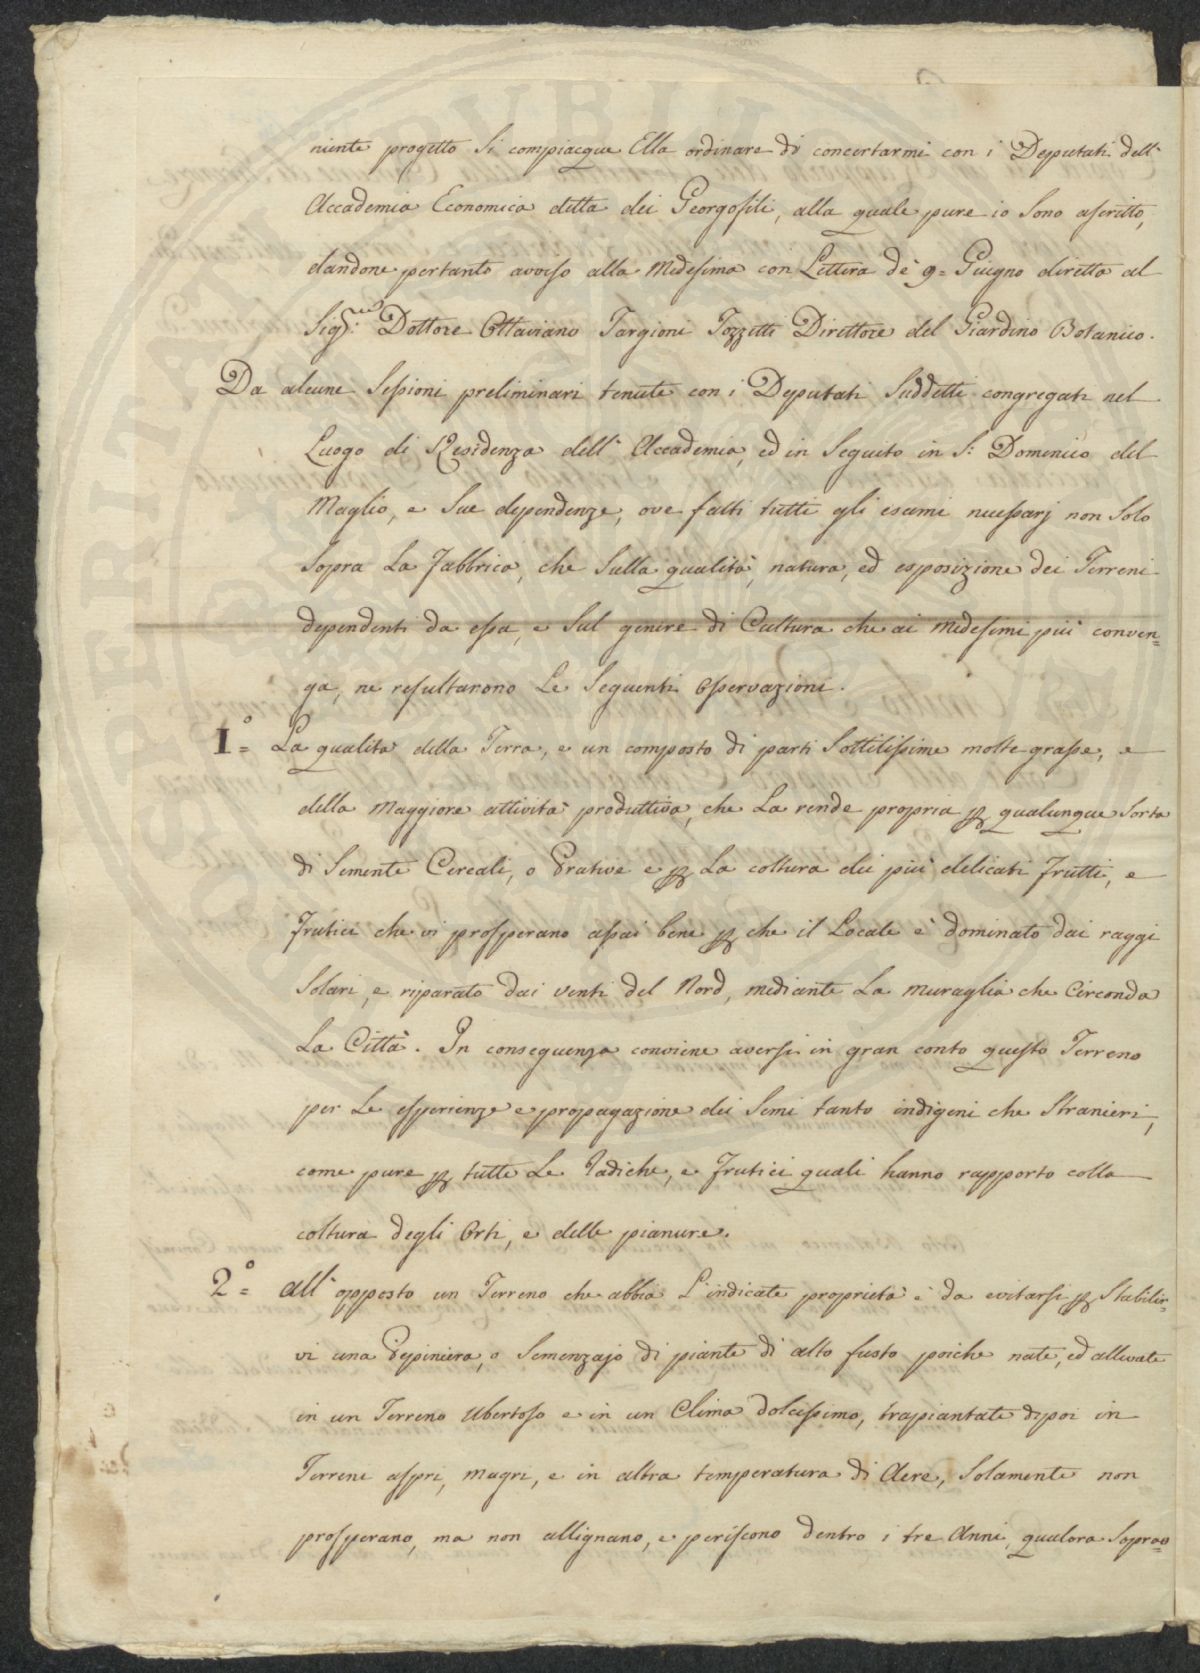 niente progetto si compiacque Ella ordinare di concertarmi con i Deputati dell'
Accademia Economica detta dei Georgofili, alla quale pure io sono ascritto,
dandone pertanto avviso alla medesima con Lettera de' 9= Giugno diretta al
Sig.r Dottore Ottaviano Targioni Tozzetti Direttore del Giardino Botanico.
Da alcune Sessioni preliminari tenute con i Deputati Suddetti congregati nel
Luogo di Residenza dell' Accademia, ed in Seguito in S: Domenico del
Maglio, e Sue dependenze, ove fatti tutti gli esami necessarj non Solo
Sopra La Fabbrica, che Sulla qualità, natura, ed esposizione dei Terreni
dependenti da essa, e Sul genere di Cultura che ai medesimi più conven=
ga, ne resultarono Le Seguenti Osservazioni.
1°= La qualità della Terra, e un composto di parti Sottilissime molte grasse, e
della Maggiore attività produttiva, che La rende propria p qualunque Sorta
di Semente Cereali, o Prative e p La coltura dei più delicati frutti, e
frutici che vi prosperano assai bene p che il Locale è dominato dai raggi
Solari, e riparato dai venti del Nord, mediante La muraglia che Circonda
La Città. In conseguenza conviene aversi in gran conto questo Terreno
per Le esperienze e propagazione dei Semi tanto indigeni che Stranieri,
come pure p tutte Le Radiche, e Frutici quali hanno rapporto colla
coltura degli Orti, e delle pianure.
2°= All' opposto un Terreno che abbia L'indicate proprietà è da evitarsi p Stabilir=
vi una Pepiniera, o Semenzajo di piante di alto fusto poiche nate, ed allevate
in un Terreno Ubertoso e in un Clima dolcissimo, trapiantate dipoi in
Terreni aspri, magri, e in altra temperatura di Aere, Solamente non
prosperano, ma non allignano, e periscono dentro i tre Anni, qualora Sopra=